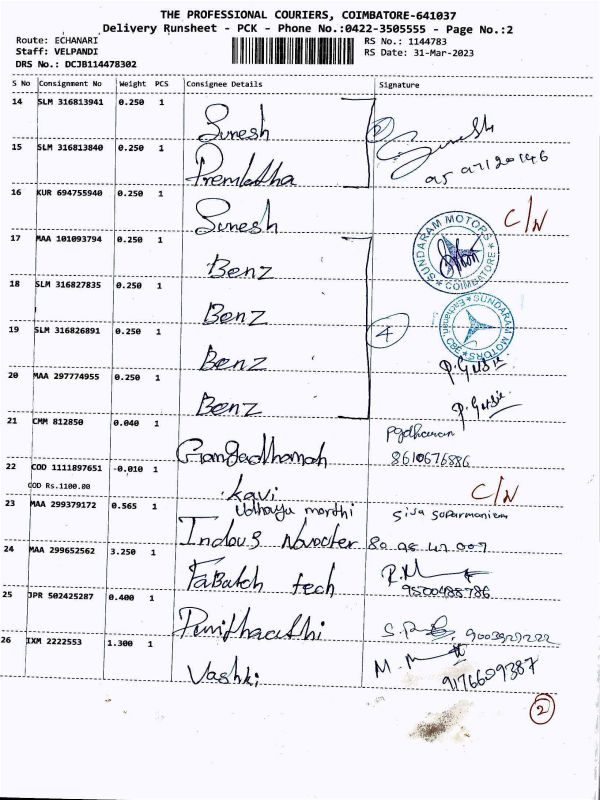 THE PROFESSIONAL COURIERS, COIMBATORE-641037
Delivery Runsheet - PCK - Phone No.:0422-3505555 - Page No.:2
Route: ECHANARI
RS No.: 1144783
Staff: VELPANDI
RS Date: 31-Mar-2023
DRS No.: DCJB114478302
S No Consignment No Weight PCS Consignee Details Signature
14 SLM 316813941 0.250 1 Suresh
15 SLM 316813840 0.250 1 Premlatha
16 KUR 694755940 0.250 1 Suresh C/N
17 MAA 101093794 0.250 1 Benz
SUNDARAM MOTORS COIMBATORE
18 SLM 316827835 0.250 1 Benz
SUNDARAM MOTORS
19 SLM 316826891 0.250 1 Benz 4
20 MAA 297774955 0.250 1 Benz
21 CMM 812850 0.040 1 8610676886
22 COD 1111897651 -0.010 1 Kavi C/N
COD Rs.1100.00
23 MAA 299379172 0.565 1
24 MAA 299652562 3.250 1 Fabatch tech 9500488786
25 JPR 502425287 0.400 1
26 IXM 2222553 1.300 1 Vashki 9176609387
2